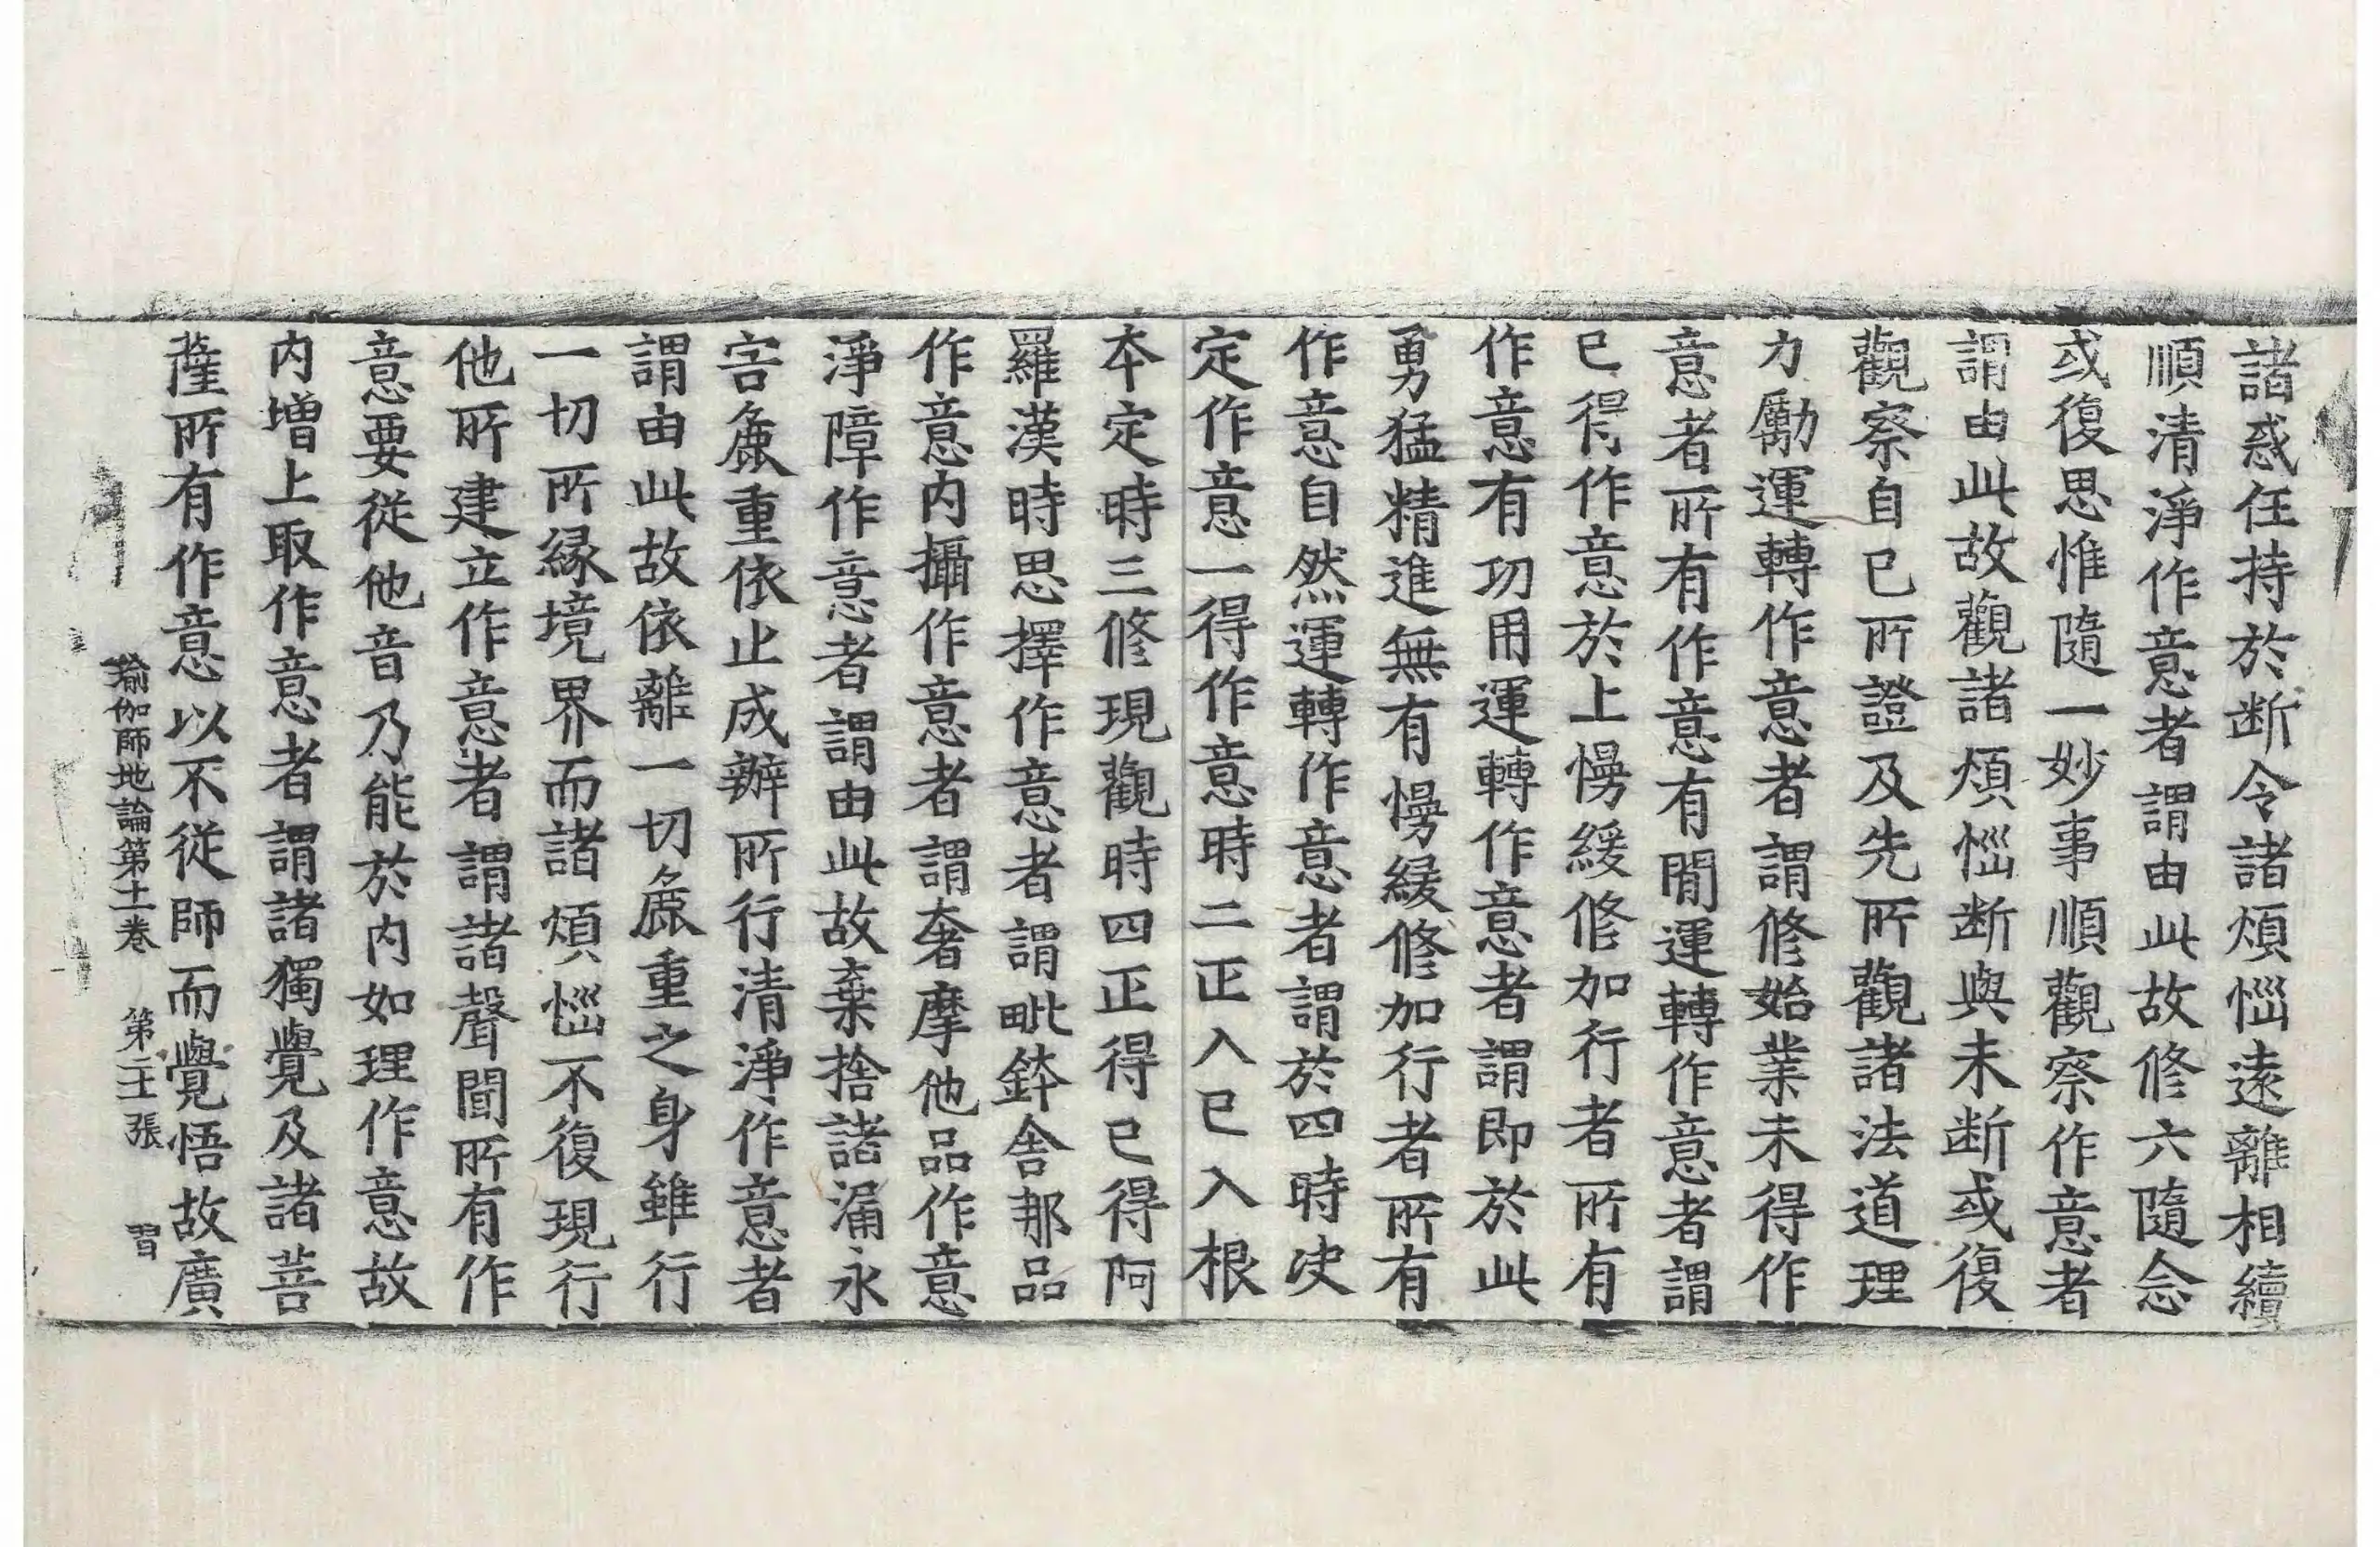 諸惑任持於断令諸煩惱遠離相續
順清淨作意者謂由此故修六隨念
或復思惟隨一妙事順觀察作意者
謂由此故觀諸煩惱断與未断或復
觀察自已所證及先所觀諸法道理
力勵運轉作意者謂修始業未得作
意者所有作意有閒運轉作意者謂
已得作意於上慢緩修加行者所有
作意有功用運轉作意者謂即於此
勇猛精進無有慢緩修加行者所有
作意自然運轉作意者謂於四時决
定作意一得作意時二正入已入根
本定時三修現觀時四正得已得阿
羅漢時思擇作意者謂毗鉢舍那品
作意内攝作意者謂奢摩他品作意
淨障作意者謂由此故棄捨諸漏永
害麁重依止成辦所行清淨作意者
謂由此故依離一切麁重之身雖行
一切所緣境界而諸煩惱不復現行
他所建立作意者謂諸聲聞所有作
意要從他音乃能於内如理作意故
内增上取作意者謂諸獨覺及諸菩
薩所有作意以不從師而覺悟故廣
瑜伽師地論第十一卷　第二十張　習